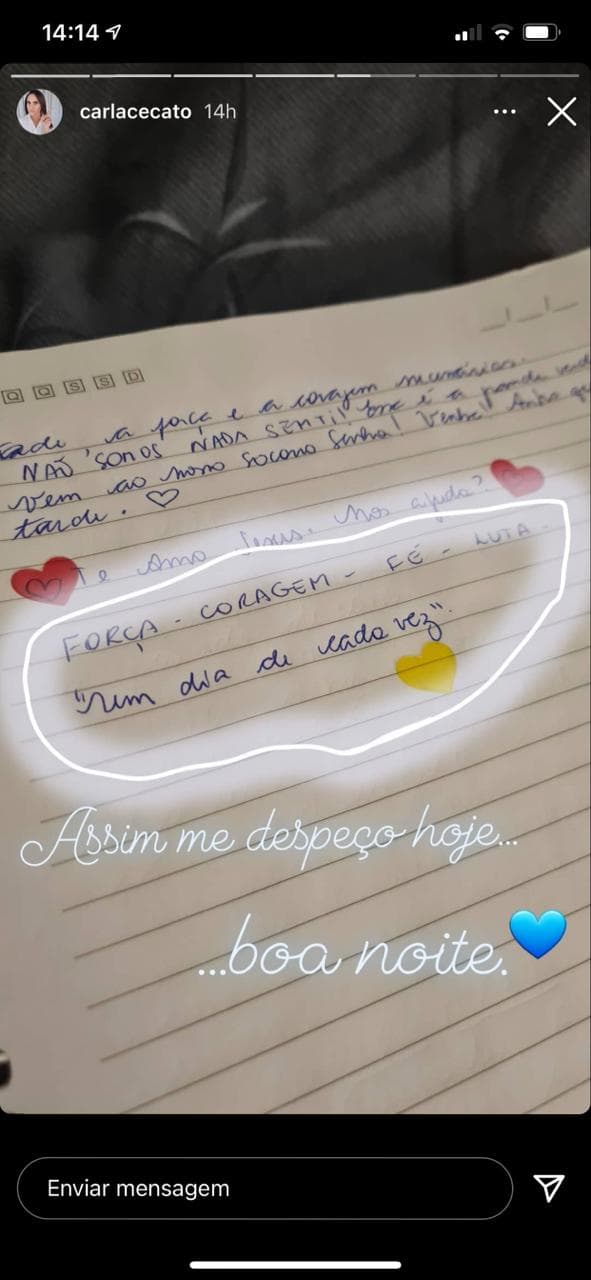 14:14
carlacecato 14h
Q Q S S D
a força e a coragem necessárias.
NADA SENTI!
vem ao nosso socorro Senhor! Venha!
tarde. ♡
Te Amo Jesus. Nos ajuda?
FORÇA - CORAGEM - FÉ - LUTA -
"Num dia de cada vez".
Assim me despeço hoje...
...boa noite.
Enviar mensagem